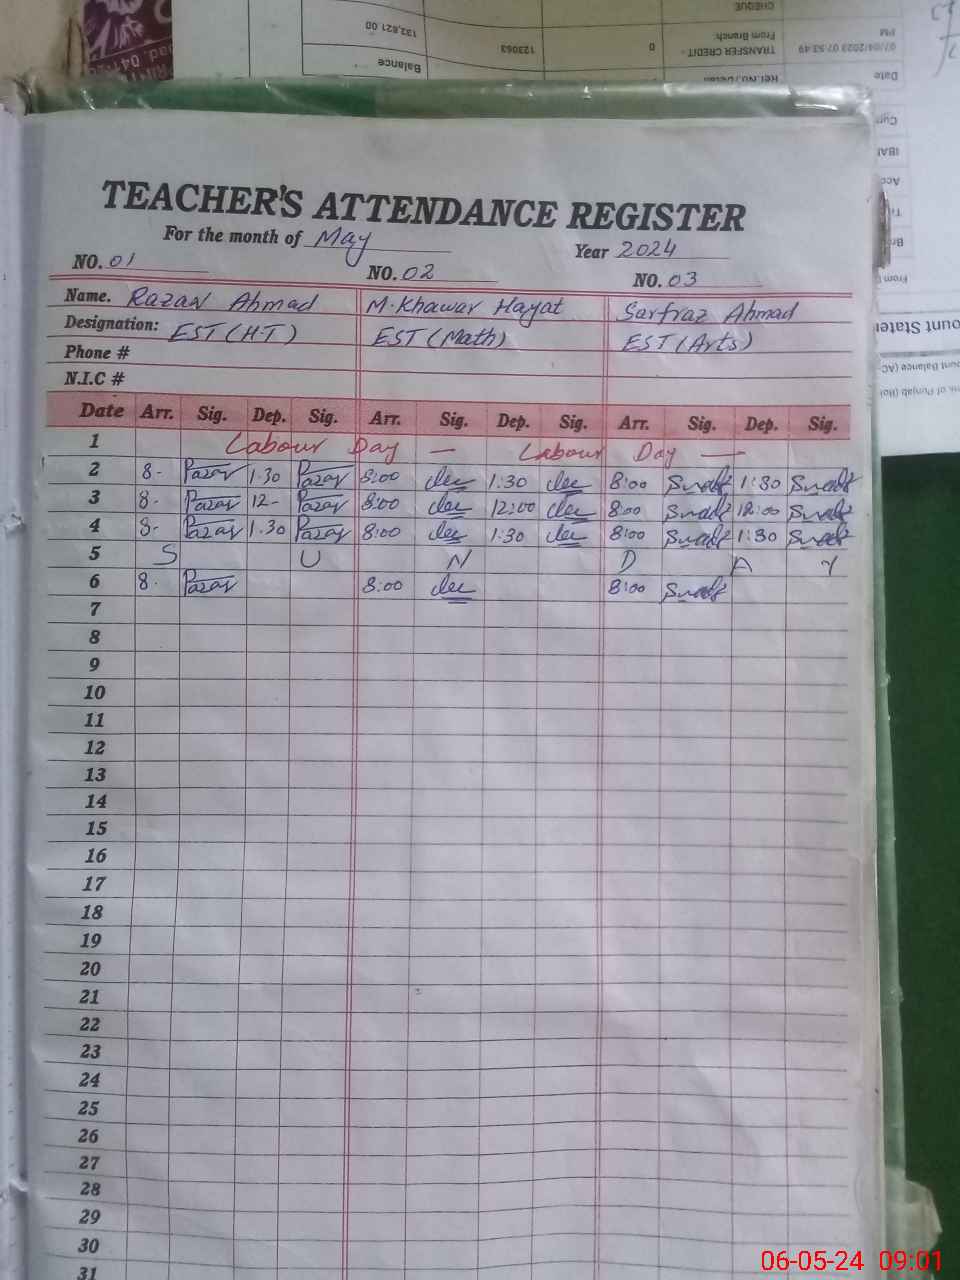 CHEQUE
133,821.00
From Branch:
PM
123063
0
TRANSFER CREDIT -
07/04/2023 07:53:49
Balance
Date
IBAN
TEACHER'S ATTENDANCE REGISTER
For the month of May
Year 2024
NO. 01 NO. 02 NO. 03
Name. Razaw Ahmad M. Khawar Hayat Sarfraz Ahmad
Designation: EST (H.T) EST (Math) EST (Arts)
Phone #
N.I.C #
Date Arr. Sig. Dep. Sig. Arr. Sig. Dep. Sig. Arr. Sig. Dep. Sig.
1 Labour Day — Labour Day —
2 8- 1.30 8:00 1:30 8:00 1:30
3 8- 12- 8:00 12:00 8:00 12:00
4 8- 1.30 8:00 1:30 8:00 1:30
5 S U N D A Y
6 8- 8:00 8:00
7
8
9
10
11
12
13
14
15
16
17
18
19
20
21
22
23
24
25
26
27
28
29
30
31
06-05-24 09:01